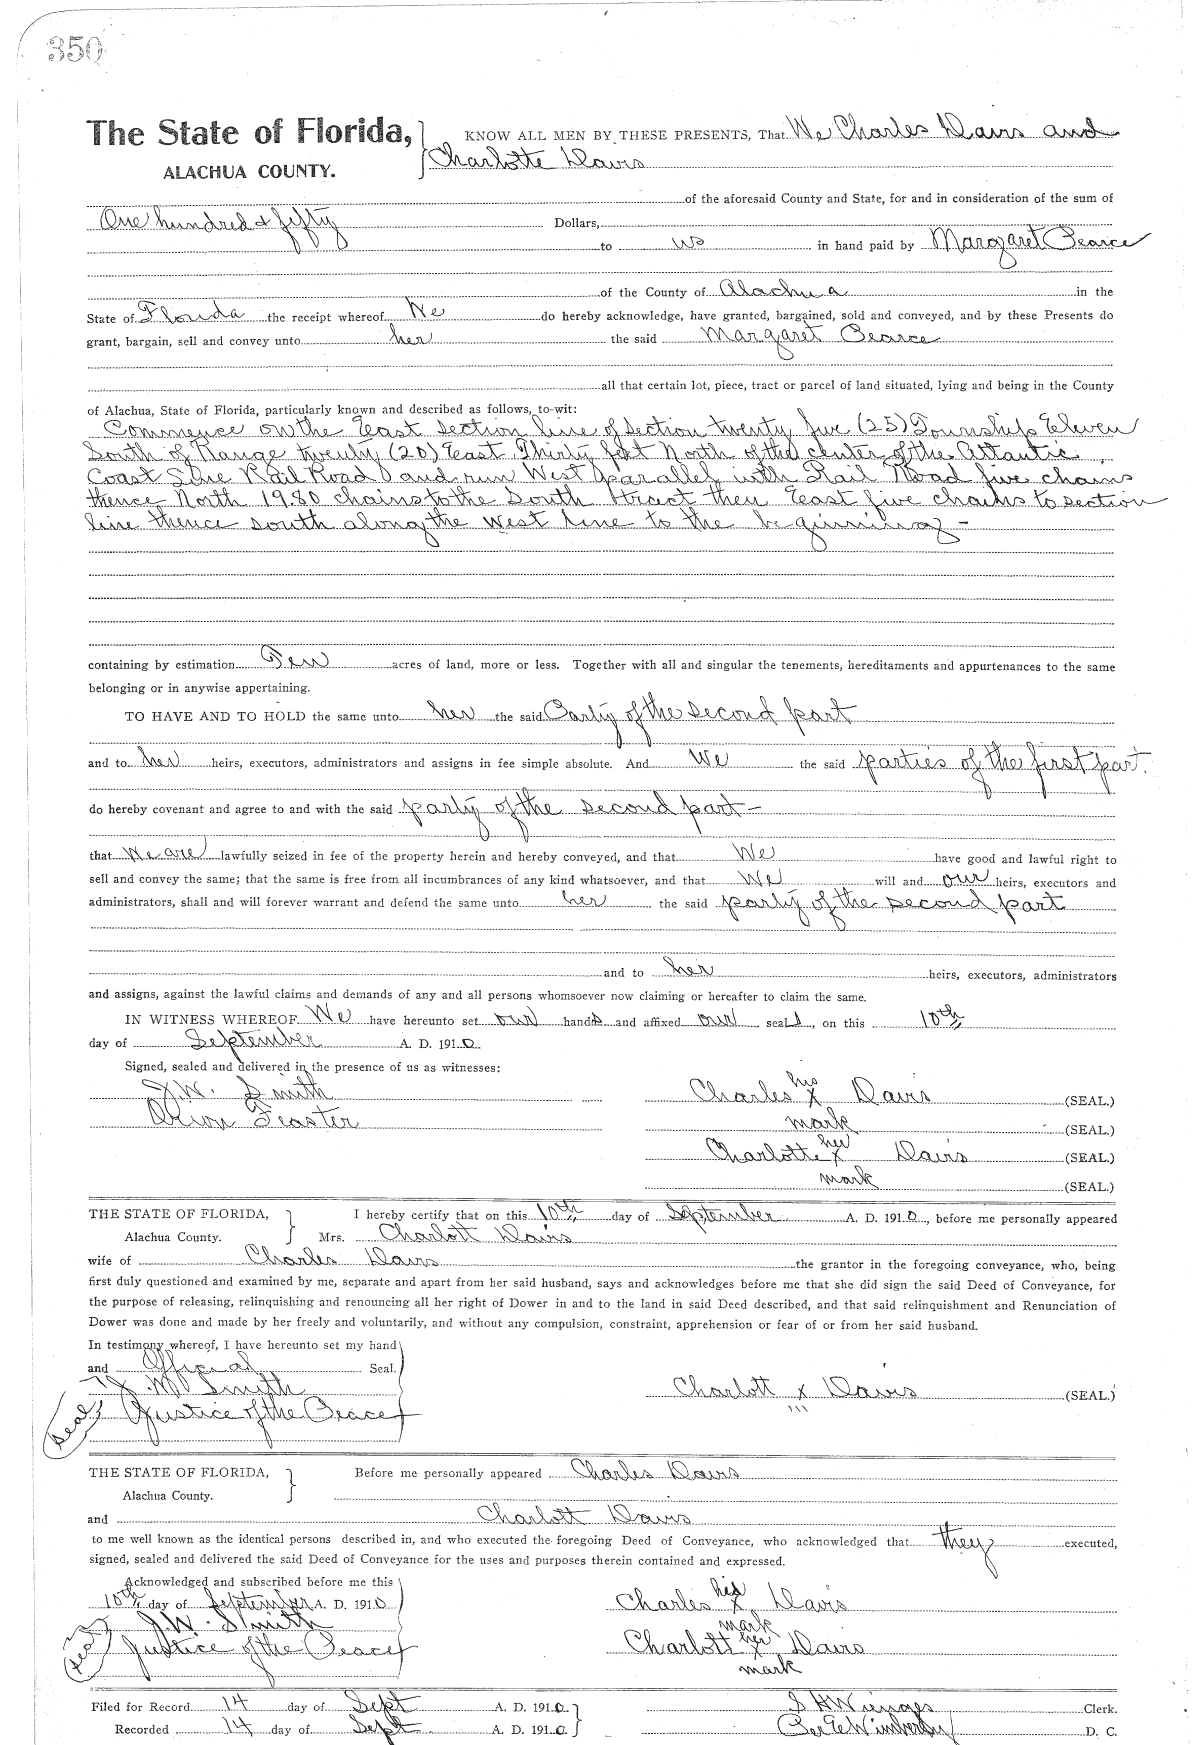 350
The State of Florida, KNOW ALL MEN BY THESE PRESENTS, That We Charles Davis and
ALACHUA COUNTY. Charlotte Davis
of the aforesaid County and State, for and in consideration of the sum of
One hundred & fifty Dollars,
to us in hand paid by Margaret Pearce
of the County of Alachua in the
State of Florida the receipt whereof We do hereby acknowledge, have granted, bargained, sold and conveyed, and by these Presents do
grant, bargain, sell and convey unto her the said Margaret Pearce
all that certain lot, piece, tract or parcel of land situated, lying and being in the County
of Alachua, State of Florida, particularly known and described as follows, to-wit:
Commence on the East section line of section twenty five (25) Township Eleven
South of Range twenty (20) East Thirty feet North of the center of the Atlantic
Coast Line Rail Road and run West parallel with Rail Road five chains
thence North 19.80 chains to the South tract then East five chains to section
line thence south along the west line to the beginning -
containing by estimation Ten acres of land, more or less. Together with all and singular the tenements, hereditaments and appurtenances to the same
belonging or in anywise appertaining.
TO HAVE AND TO HOLD the same unto her the said Party of the second part
and to her heirs, executors, administrators and assigns in fee simple absolute. And We the said parties of the first part.
do hereby covenant and agree to and with the said party of the second part -
that We are lawfully seized in fee of the property herein and hereby conveyed, and that We have good and lawful right to
sell and convey the same; that the same is free from all incumbrances of any kind whatsoever, and that We will and our heirs, executors and
administrators, shall and will forever warrant and defend the same unto her the said party of the second part
and to her heirs, executors, administrators
and assigns, against the lawful claims and demands of any and all persons whomsoever now claiming or hereafter to claim the same.
IN WITNESS WHEREOF We have hereunto set our hands and affixed our seals, on this 10th
day of September A. D. 1910.
Signed, sealed and delivered in the presence of us as witnesses:
J.W. Smith Charles his x Davis (SEAL.)
Orion Feaster mark (SEAL.)
Charlotte her x Davis (SEAL.)
mark (SEAL.)
THE STATE OF FLORIDA, I hereby certify that on this 10th day of September A. D. 1910, before me personally appeared
Alachua County. Mrs. Charlott Davis
wife of Charles Davis the grantor in the foregoing conveyance, who, being
first duly questioned and examined by me, separate and apart from her said husband, says and acknowledges before me that she did sign the said Deed of Conveyance, for
the purpose of releasing, relinquishing and renouncing all her right of Dower in and to the land in said Deed described, and that said relinquishment and Renunciation of
Dower was done and made by her freely and voluntarily, and without any compulsion, constraint, apprehension or fear of or from her said husband.
In testimony whereof, I have hereunto set my hand
and Official Seal.
J. W. Smith Charlott x Davis (SEAL.)
Seal Justice of the Peace
THE STATE OF FLORIDA, Before me personally appeared Charles Davis
Alachua County.
and Charlott Davis
to me well known as the identical persons described in, and who executed the foregoing Deed of Conveyance, who acknowledged that they executed,
signed, sealed and delivered the said Deed of Conveyance for the uses and purposes therein contained and expressed.
Acknowledged and subscribed before me this
10th day of September A. D. 1910 Charles his x Davis
J.W. Smith mark
Seal Justice of the Peace Charlott her x Davis
mark
Filed for Record 14 day of Sept A. D. 1910. S H Wienges Clerk.
Recorded 14 day of Sept A. D. 1910. Wimberly D. C.